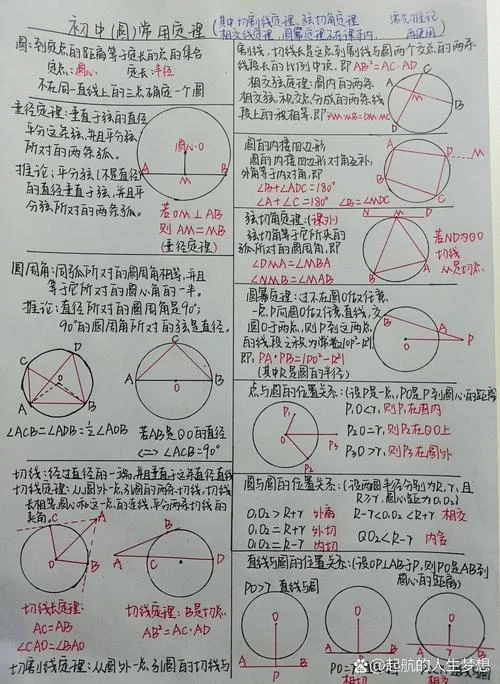 初中(圆)常用定理
(其中切割线定理、弦切角定理
相交线定理,圆幂定理不在课本内,
需先推论
再使用)
圆:到定点的距离等于定长的点的集合
定点:圆心 定长:半径
不在同一直线上的三点确定一个圆
垂径定理:垂直于弦的直径
平分这条弦,并且平分弦
所对的两条弧。
推论:平分弦(不是直径)
的直径垂直于弦,并且平
分弦所对的两条弧。
圆心·O
A M B
若OM⊥AB
则AM=MB
(垂径定理)
圆周角:同弧所对的圆周角相等,并且
等于它所对的圆心角的一半。
推论:直径所对的圆周角是90°;
90°的圆周角所对的弦是直径。
C D
O
A B
C
A O B
∠ACB=∠ADB=½∠AOB
若AB是⊙O的直径
<=>∠ACB=90°
切线:经过直径的一端,并且垂直于这条直径直线
切线定理:从圆外一点引圆的两条切线,切线
长相等,圆心和这一点的连线,平分两条切线的
夹角。
C A
O
B
B
A C D
切线长定理:
AC=AB
∠CAO=∠BAO
切线定理:B是切点
AB²=AC·AD
切割线定理:从圆外一点引圆的切线与
割线,切线长是这点到割线与圆两个交点的两条
线段长的比例中项,即AB²=AC·AD
相交弦定理:圆内的两条
相交弦,被交点分成的两条线
段上的积相等,即AM·MB=DM·MC
C
A M B
D
圆的内接四边形
圆的内接四边形对角互补,
外角等于内对角,即
∠B+∠ADC=180°
∠A+∠C=180° ∠B=∠MDC
A D M
B C
弦切角定理:(课外)
弦切角等于它所夹的
弧所对的圆周角,即
∠DMA=∠MBA
∠NMB=∠MAB
N M D
B A
若ND为⊙O
切线
M是切点
圆幂定理:过不在圆O任意
一点P向圆O任意直线,交
圆O于两点,则P到这两点
的线段之积为常数|OP²-r²|
即:PA·PB=|PO²-R²|
(其中R是圆的半径)
B
A P
点与圆的位置关系:(设P是一点,PO是P到圆心的距离)
P₁O<r,则P₁在圆内
P₂O=r,则P₂在⊙O上
P₃O>r,则P₃在圆外
P₁
O P₃
P₂
圆与圆的位置关系:(设两圆半径分别为R,r,且
R>r,圆心距为O₁O₂)
O₁O₂>R+r 外离 R-r<O₁O₂<R+r 相交
O₁O₂=R+r 外切 O₁O₂<R-r 内含
O₁O₂=R-r 内切
直线与圆的位置关系:(设OP⊥AB于P,则PO是AB到
圆心的距离)
PO>r 直线与圆
O
P
O
O
A B
相切
相交
@起航的人生梦想